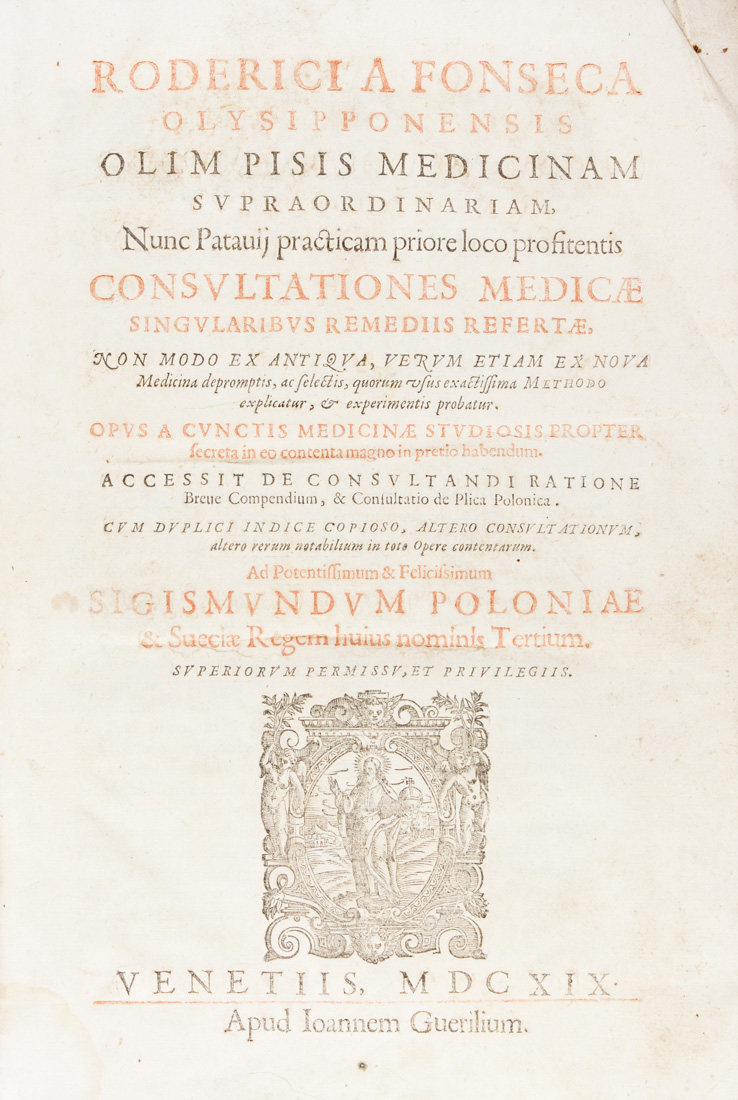 RODERICI A FONSECA
OLYSIPPONENSIS
OLIM PISIS MEDICINAM
SVPRAORDINARIAM,
Nunc Patauij practicam priore loco profitentis
CONSVLTATIONES MEDICÆ
SINGVLARIBVS REMEDIIS REFERTÆ,
NON MODO EX ANTIQVA, VERVM ETIAM EX NOVA
Medicina depromptis, ac ſelectis, quorum vſus exactiſſima METHODO
explicatur, & experimentis probatur.
OPVS A CVNCTIS MEDICINÆ STVDIOSIS PROPTER
ſecreta in eo contenta magno in pretio habendum.
ACCESSIT DE CONSVLTANDI RATIONE
Breue Compendium, & Conſultatio de Plica Polonica.
CVM DVPLICI INDICE COPIOSO, ALTERO CONSVLTATIONVM,
altero rerum notabilium in toto Opere contentarum.
Ad Potentiſſimum & Feliciſsimum
SIGISMVNDVM POLONIAE
& Sueciæ Regem huius nominis Tertium.
SVPERIORVM PERMISSV, ET PRIVILEGIIS.
VENETIIS, MDCXIX.
Apud Ioannem Guerilium.